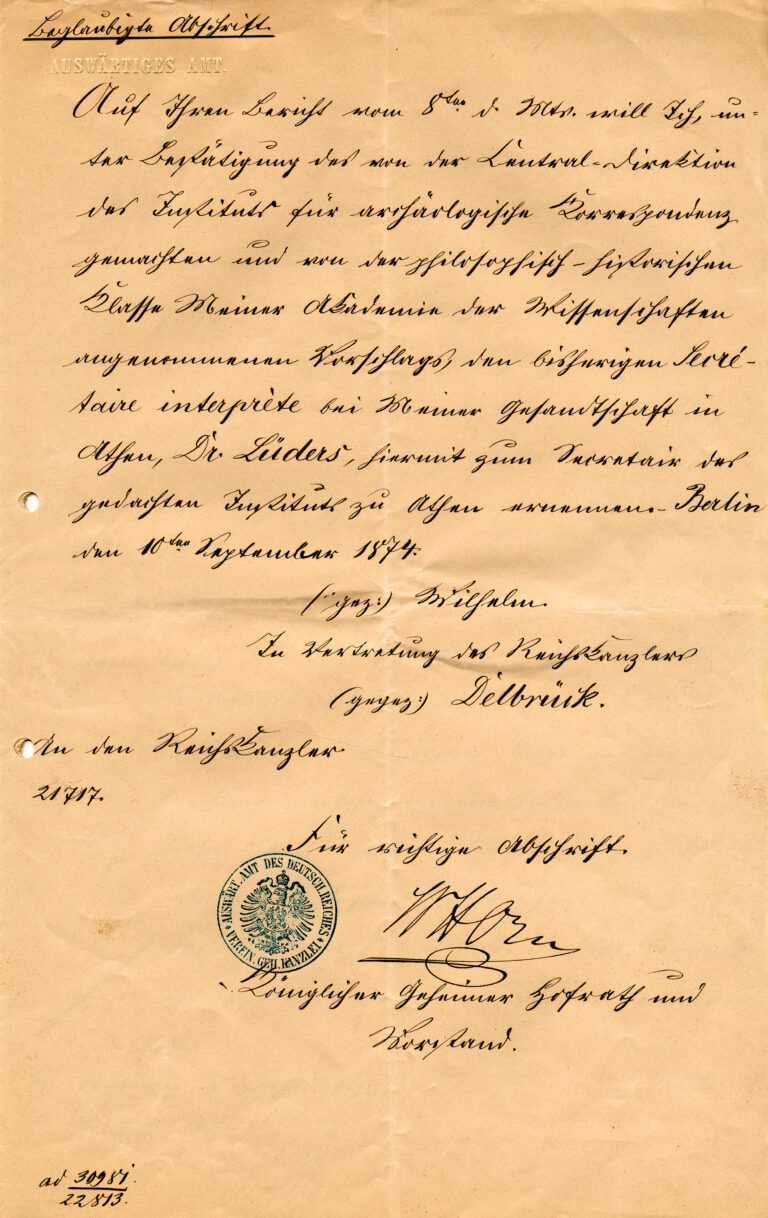 Beglaubigte Abschrift.
AUSWÄRTIGES AMT.
Auf Ihren Bericht vom 8ten d. Mts. will Ich, un-
ter Bestätigung des von der Central-Direktion
des Instituts für archäologische Korrespondenz
gemachten und von der philosophisch-historischen
Klasse Meiner Akademie der Wissenschaften
angenommenen Vorschlags, den bisherigen Secré-
taire interprète bei Meiner Gesandtschaft in
Athen, Dr. Lüders, hiermit zum Secretair des
gedachten Instituts zu Athen ernennen.- Berlin
den 10ten September 1874.
(gez:) Wilhelm.
In Vertretung des Reichskanzlers
(gegez:) Delbrück.
An den Reichskanzler
21717.
Für richtige Abschrift.
AUSWÄRT. AMT DES DEUTSCH. REICHES
VEREIN. GEH. KANZLEI
Königlicher Geheimer Hofrath und
Vorstand.
ad 30981.
22813.